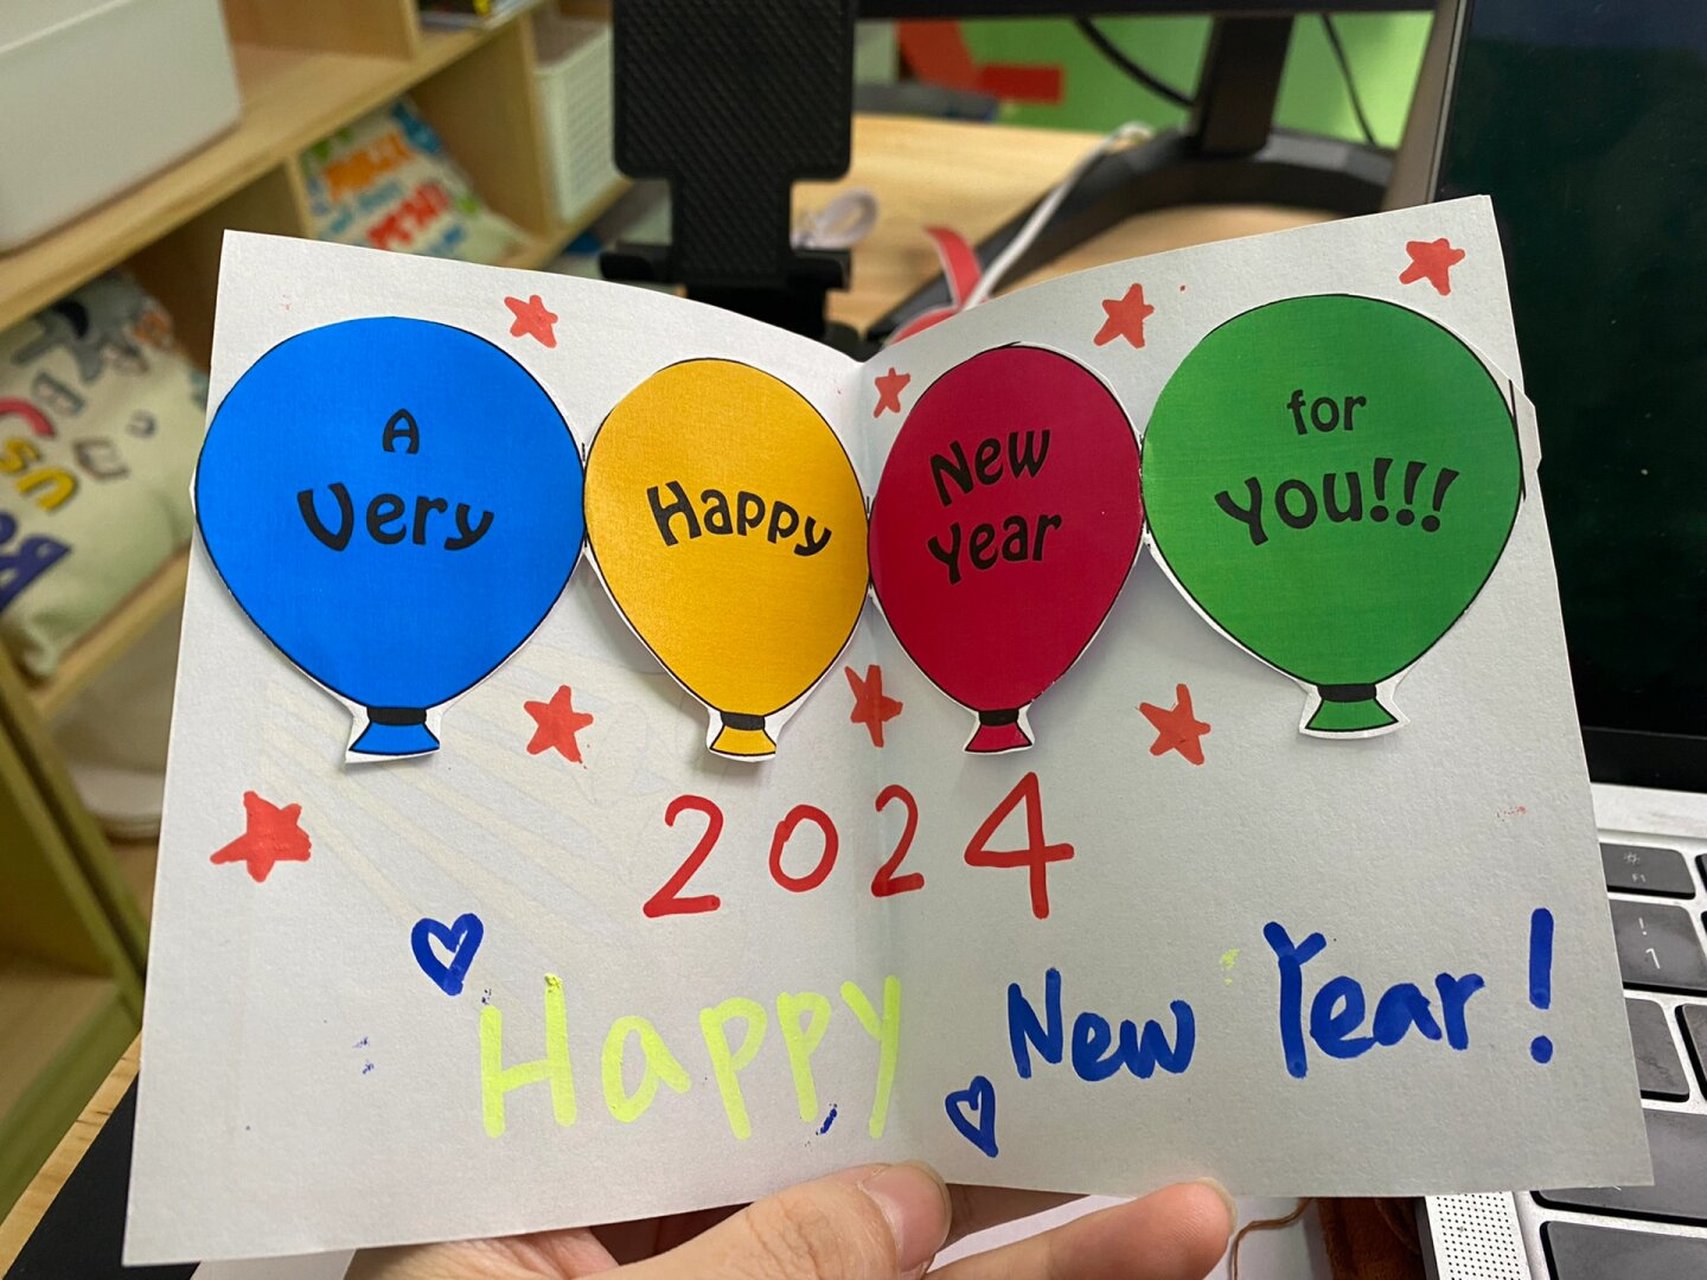 A
Very
Happy
New
Year
for
You!!!
2024
Happy New Year!
F1
!
1